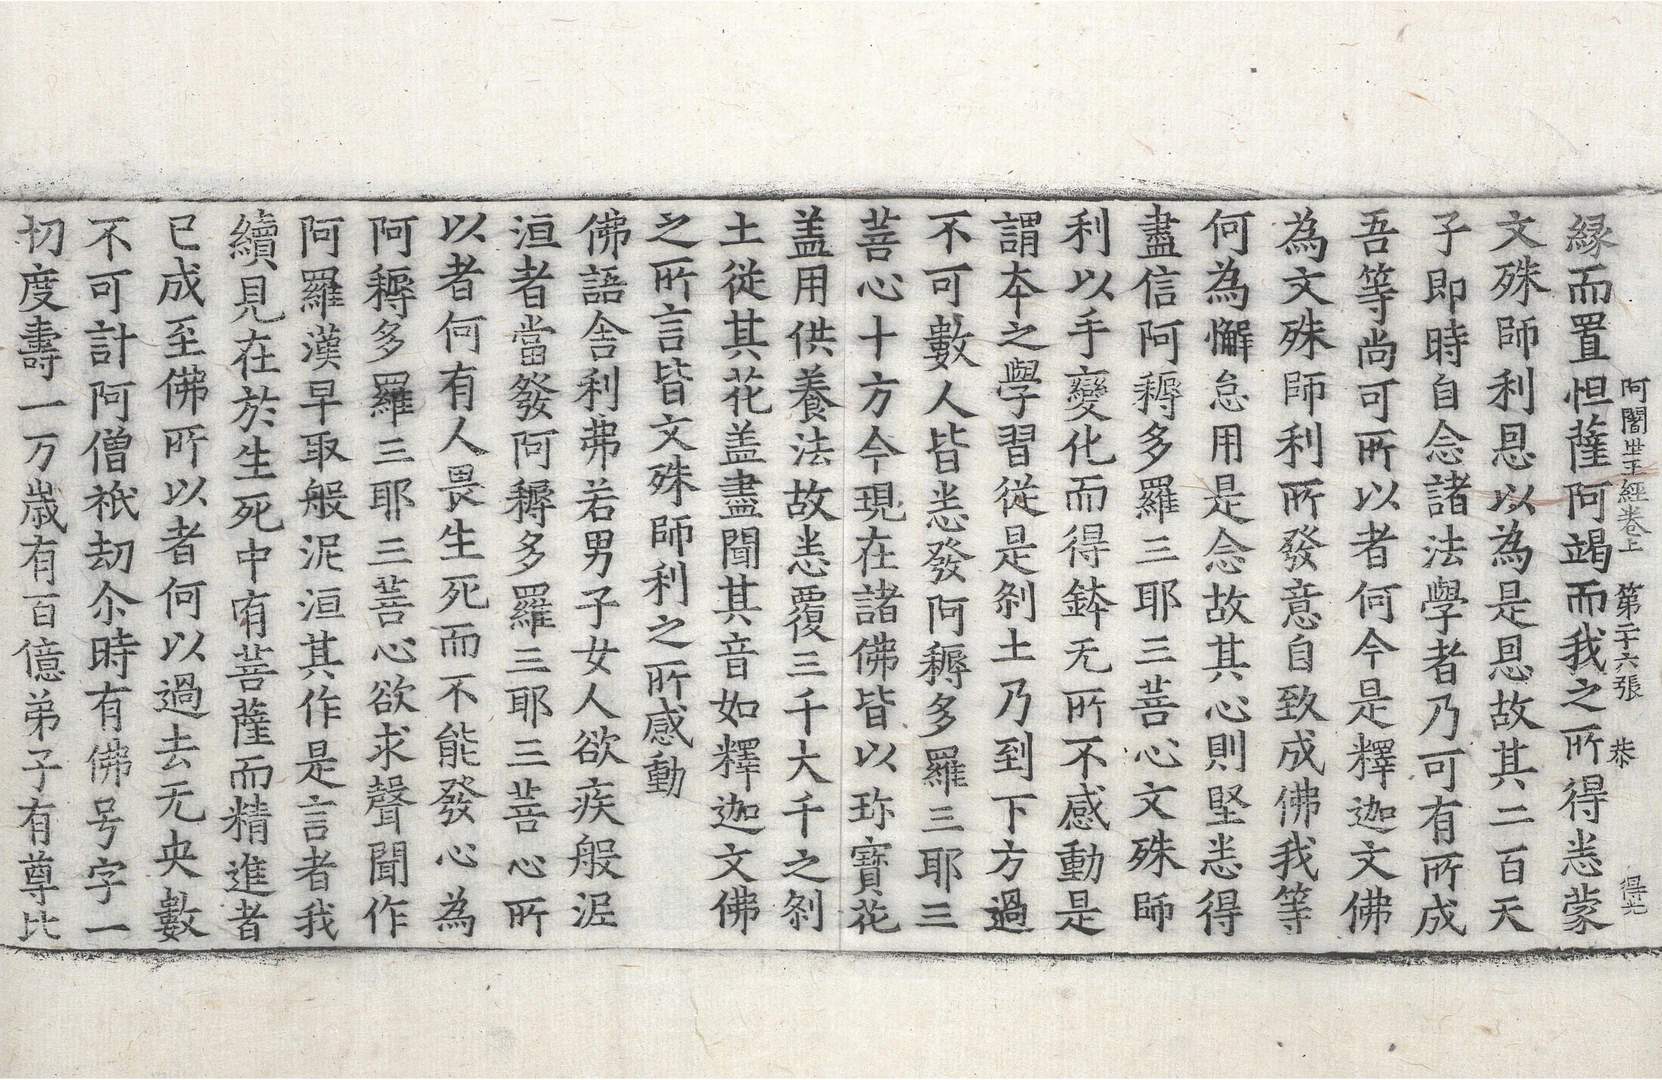 阿闍世王經卷上　第二十六張　恭　得光
縁而置怛薩阿竭而我之所得悉蒙
文殊師利恩以為是恩故其二百天
子即時自念諸法學者乃可有所成
吾等尚可所以者何今是釋迦文佛
為文殊師利所發意自致成佛我等
何為懈怠用是念故其心則堅悉得
盡信阿耨多羅三耶三菩心文殊師
利以手變化而得鉢无所不感動是
謂本之學習從是刹土乃到下方過
不可數人皆悉發阿耨多羅三耶三
菩心十方今現在諸佛皆以珎寶花
盖用供養法故悉覆三千大千之刹
土從其花盖盡聞其音如釋迦文佛
之所言皆文殊師利之所感動
佛語舍利弗若男子女人欲疾般泥
洹者當發阿耨多羅三耶三菩心所
以者何有人畏生死而不能發心為
阿耨多羅三耶三菩心欲求聲聞作
阿羅漢早取般泥洹其作是言者我
續見在於生死中有菩薩而精進者
已成至佛所以者何以過去无央數
不可計阿僧祇劫尒時有佛号字一
切度壽一万歲有百億弟子有尊比